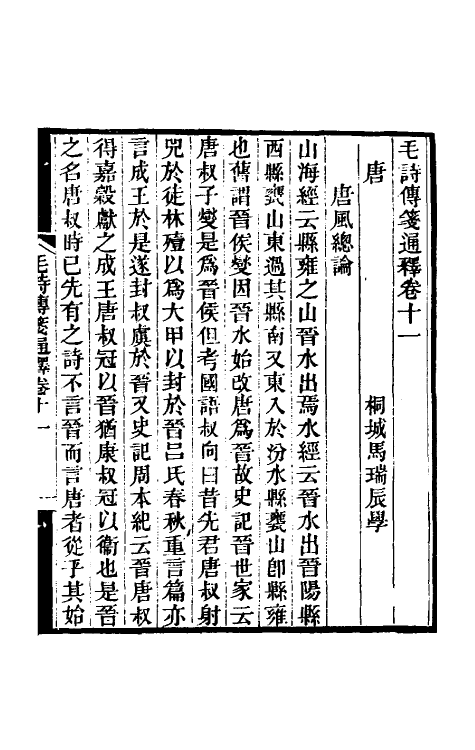 毛詩傳箋通釋卷十一
唐　桐城馬瑞辰學
唐風總論
山海經云縣雍之山晉水出焉水經云晉水出晉陽縣
西縣甕山東過其縣南又東入於汾水縣甕山卽縣雍
也舊謂晉侯燮因晉水始改唐爲晉故史記晉世家云
唐叔子燮是爲晉侯但考國語叔向曰昔先君唐叔射
兕於徒林殪以爲大甲以封於晉呂氏春秋重言篇亦
言成王於是遂封叔虞於晉又史記周本紀云晉唐叔
得嘉穀獻之成王唐叔冠以晉猶康叔冠以衞也是晉
之名唐叔時已先有之詩不言晉而言唐者從乎其始
毛詩傳箋通釋卷十一